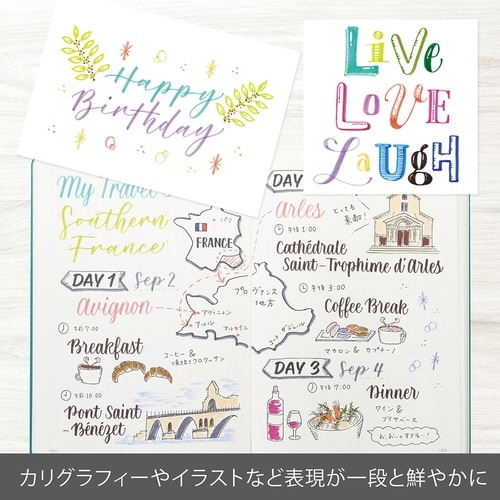 Happy
Birthday
LiVe
LOVE
LaUgH
My Travel
Southern
France
パリ
FRANCE
DAY 1 Sep 2
Avignon
午前 7:00
Breakfast
コーヒー &
焼きたてクロワッサン
午前 10:00
Pont Saint
-Bénézet
プロヴァンス
地方
アヴィニョン
アルル
マルセイユ
コートダジュール
DAY
Arles
とっても
素敵!
午後 1:00
Cathédrale
Saint-Trophime d'Arles
午後 3:00
Coffee Break
マカロン & カプチーノ
DAY 3 Sep 4
午後 7:00
Dinner
ワイン &
ブイヤベース
カリグラフィーやイラストなど表現が一段と鮮やかに